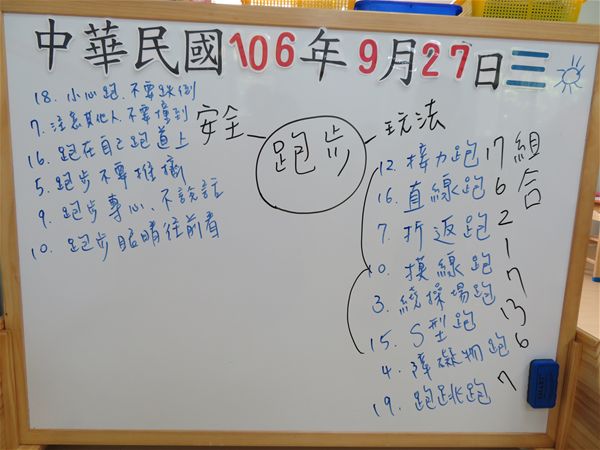 中華民國106年9月27日三
18. 小心跑.不要跌倒
7. 注意其他人不要撞到
16. 跑在自己跑道上
5. 跑步不要推擠
9. 跑步專心、不說話
10. 跑步眼睛往前看
安全
跑步
玩法
12. 接力跑 17
16. 直線跑 6
7. 折返跑 2
10. 摸線跑 1
3. 繞操場跑 7
15. S型跑 13
4. 障礙物跑 6
19. 跑跳跑 7
組合